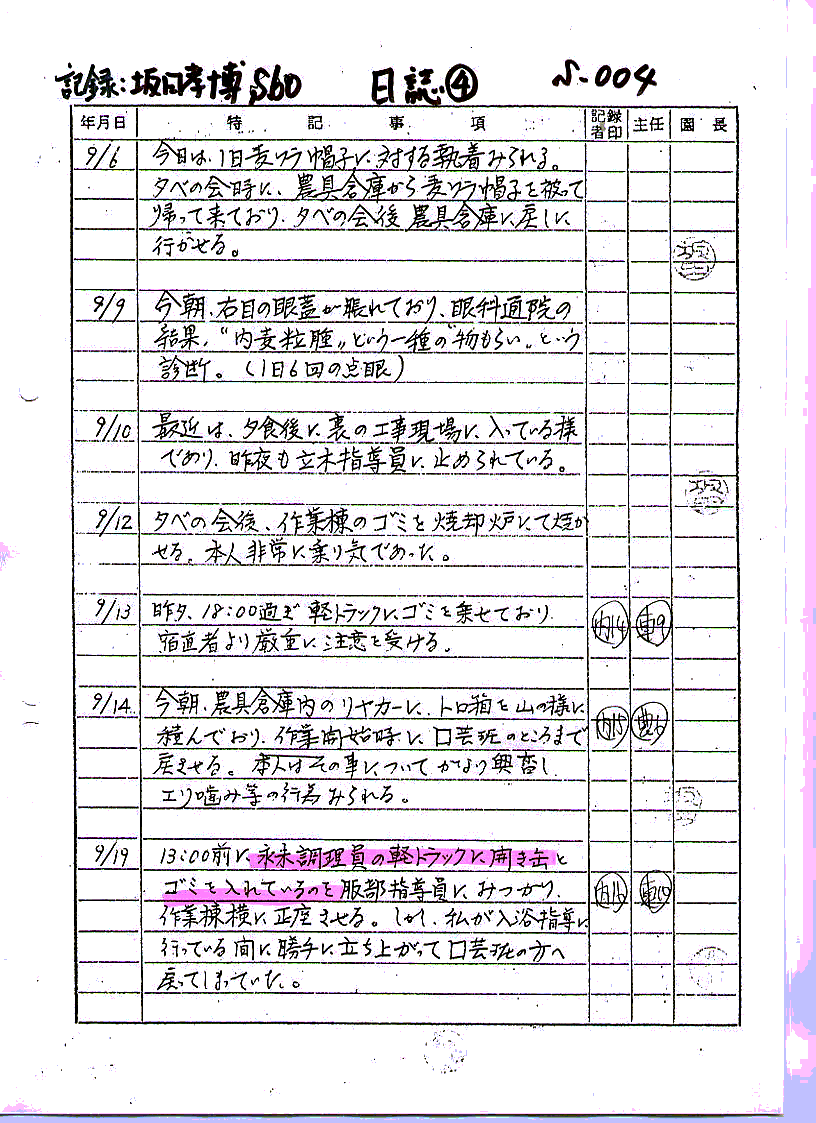 記録:坂口孝博 S60 日誌④ S-004
年月日 特記事項 記録者印 主任 園長
9/6 今日は、1日麦ワラ帽子に対する執着みられる。
夕べの会時に、農具倉庫から麦ワラ帽子を被って
帰って来ており、夕べの会後農具倉庫に戻しに
行かせる。
9/9 今朝、右目の眼蓋が脹れており、眼科通院の
結果、"内麦粒腫"という一種の"物もらい"という
診断。(1日6回の点眼)
9/10 最近は、夕食後に裏の工事現場に入っている様
であり、昨夜も立木指導員に止められている。
9/12 夕べの会後、作業棟のゴミを焼却炉にて焼か
せる。本人非常に乗り気であった。
9/13 昨夕、18:00過ぎ軽トラックにゴミを乗せており
宿直者より厳重に注意を受ける。
9/14 今朝、農具倉庫内のリヤカーに、トロ箱を山の様に
積んでおり、作業開始時に、口芸班のところまで
戻させる。本人はその事についてかなり興奮し
エリ噛み等の行為みられる。
9/19 13:00前に、永未調理員の軽トラックに開き缶と
ゴミを入れているのを服部指導員にみつかり、
作業棟横に正座させる。しかし、私が入浴指導に
行っている間に勝手に立ち上がって口芸班の方へ
戻ってしまっていた。